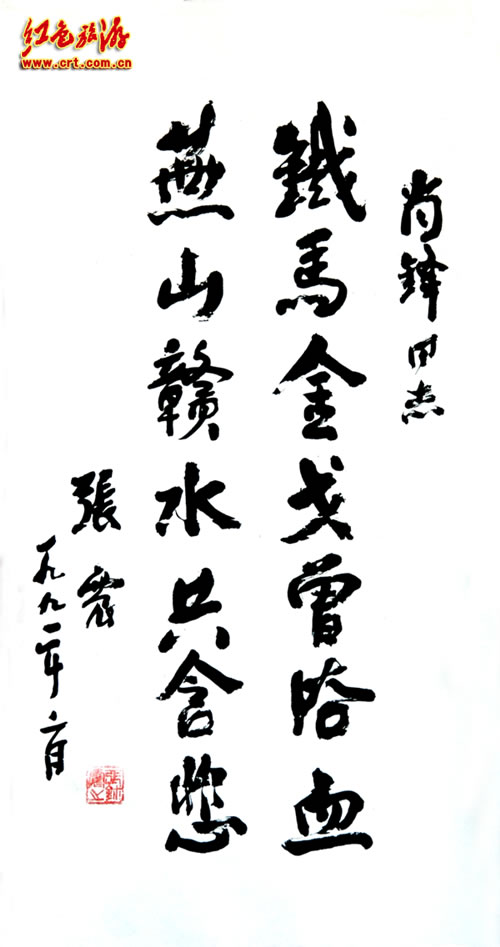 红色旅游
www.crt.com.cn
肖鋒同志
鐵馬金戈曾咯血
燕山赣水共含悲
張震
一九九一年二月